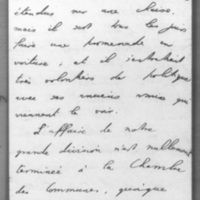 étendu sur une chaise,
mais il sort tous les jours
faire une promenade en
voiture ; et il s'entretient
très volontiers de politique
avec ses anciens amis qui
viennent le voir.
L'affaire de notre
grande division n'est nullement
terminée à la Chambre
des Communes, quoique